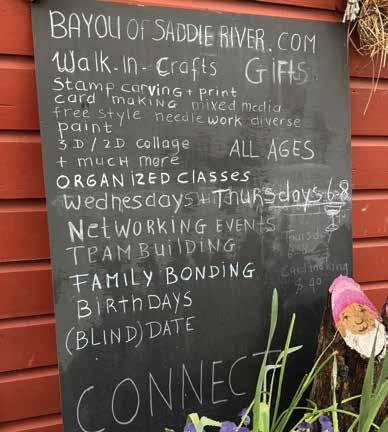 BAYOU OF SADDLE RIVER.COM
Walk-In-Crafts GIFTS
Stamp carving + print
card making mixed media
free style needlework diverse
paint
3D/2D collage
+ much more ALL AGES
ORGANIZED CLASSES
Wednesdays + Thursdays 6-8
NetWORKING EVENTS
TEAM BUiLDING
FAMILY BONDING
BirthDAYS
(BLIND) DATE
card making
CONNECT